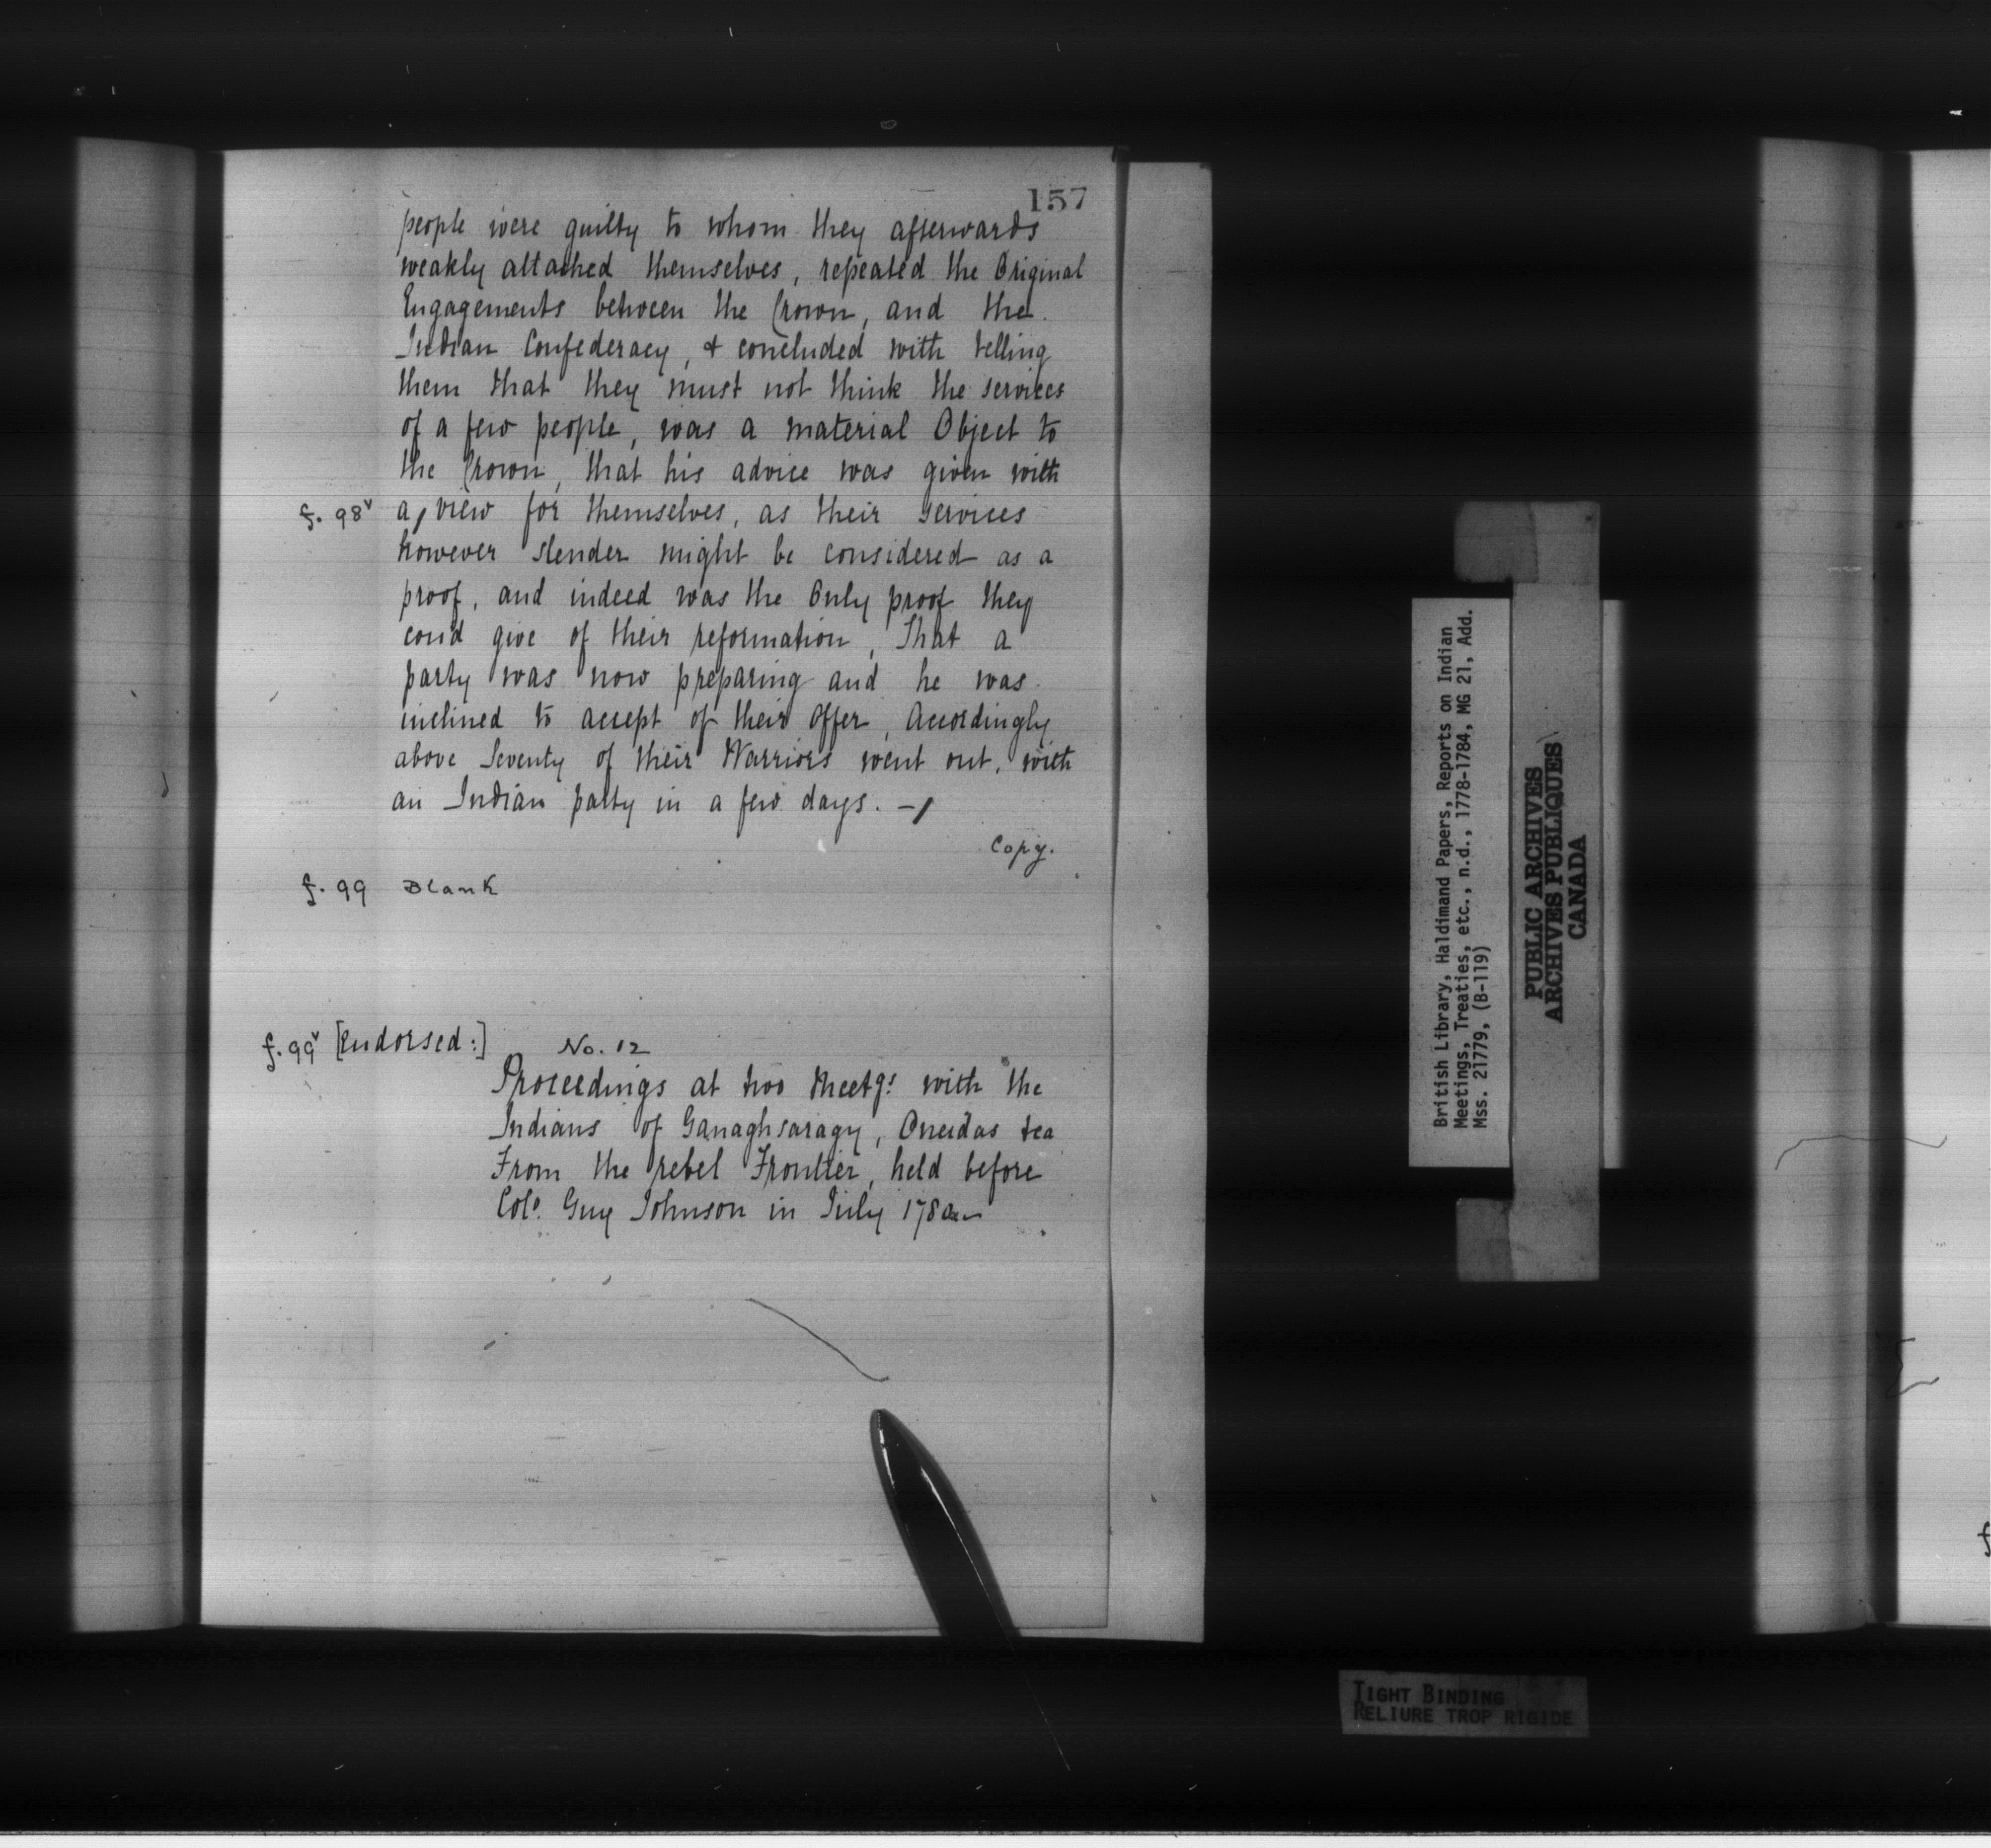 157
people were guilty to whom they afterwards
weakly attached themselves, repeated the Original
Engagements between the Crown, and the
Indian Confederacy, & concluded with telling
them that they must not think the services
of a few people, was a material Object to
the Crown, that his advice was given with
f. 98v a/view for themselves, as their services
however slender might be considered as a
proof, and indeed was the Only proof they
cou'd give of their reformation, That a
party was now preparing and he was
inclined to accept of their Offer, Accordingly
above Seventy of their Warriors went out, with
an Indian party in a few days. —/
Copy.
f. 99 Blank
f. 99v [Endorsed:] No. 12
Proceedings at two Meetgs. with the
Indians of Ganaghsaragy, Oneidas &ca
From the rebel Frontier, held before
Colo. Guy Johnson in July 1780
British Library, Haldimand Papers, Reports on Indian
Meetings, Treaties, etc., n.d., 1778-1784, MG 21, Add.
Mss. 21779, (B-119)
PUBLIC ARCHIVES
ARCHIVES PUBLIQUES
CANADA
TIGHT BINDING
RELIURE TROP RIGIDE